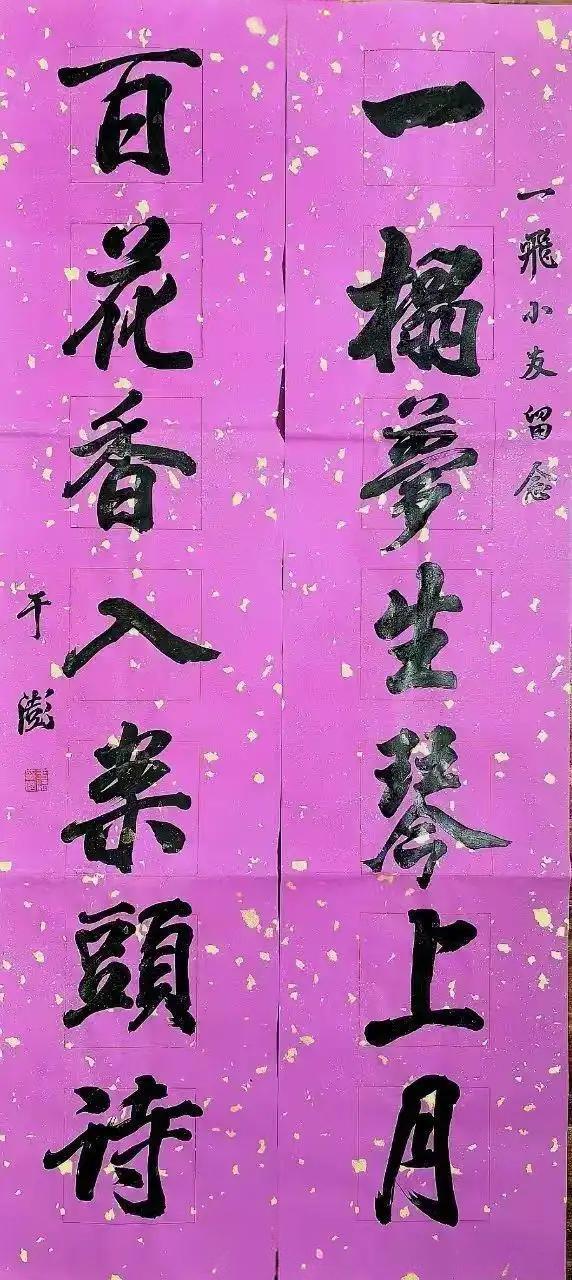 一飛小友留念
一榻夢生琴上月
百花香入案頭诗
于澎